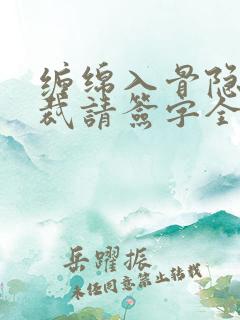 缠绵入骨隐
裁請簽字全
岳躍振
未经同意禁止转载